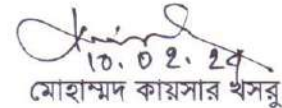 10.02.24
মোহাম্মদ কায়সার খসরু